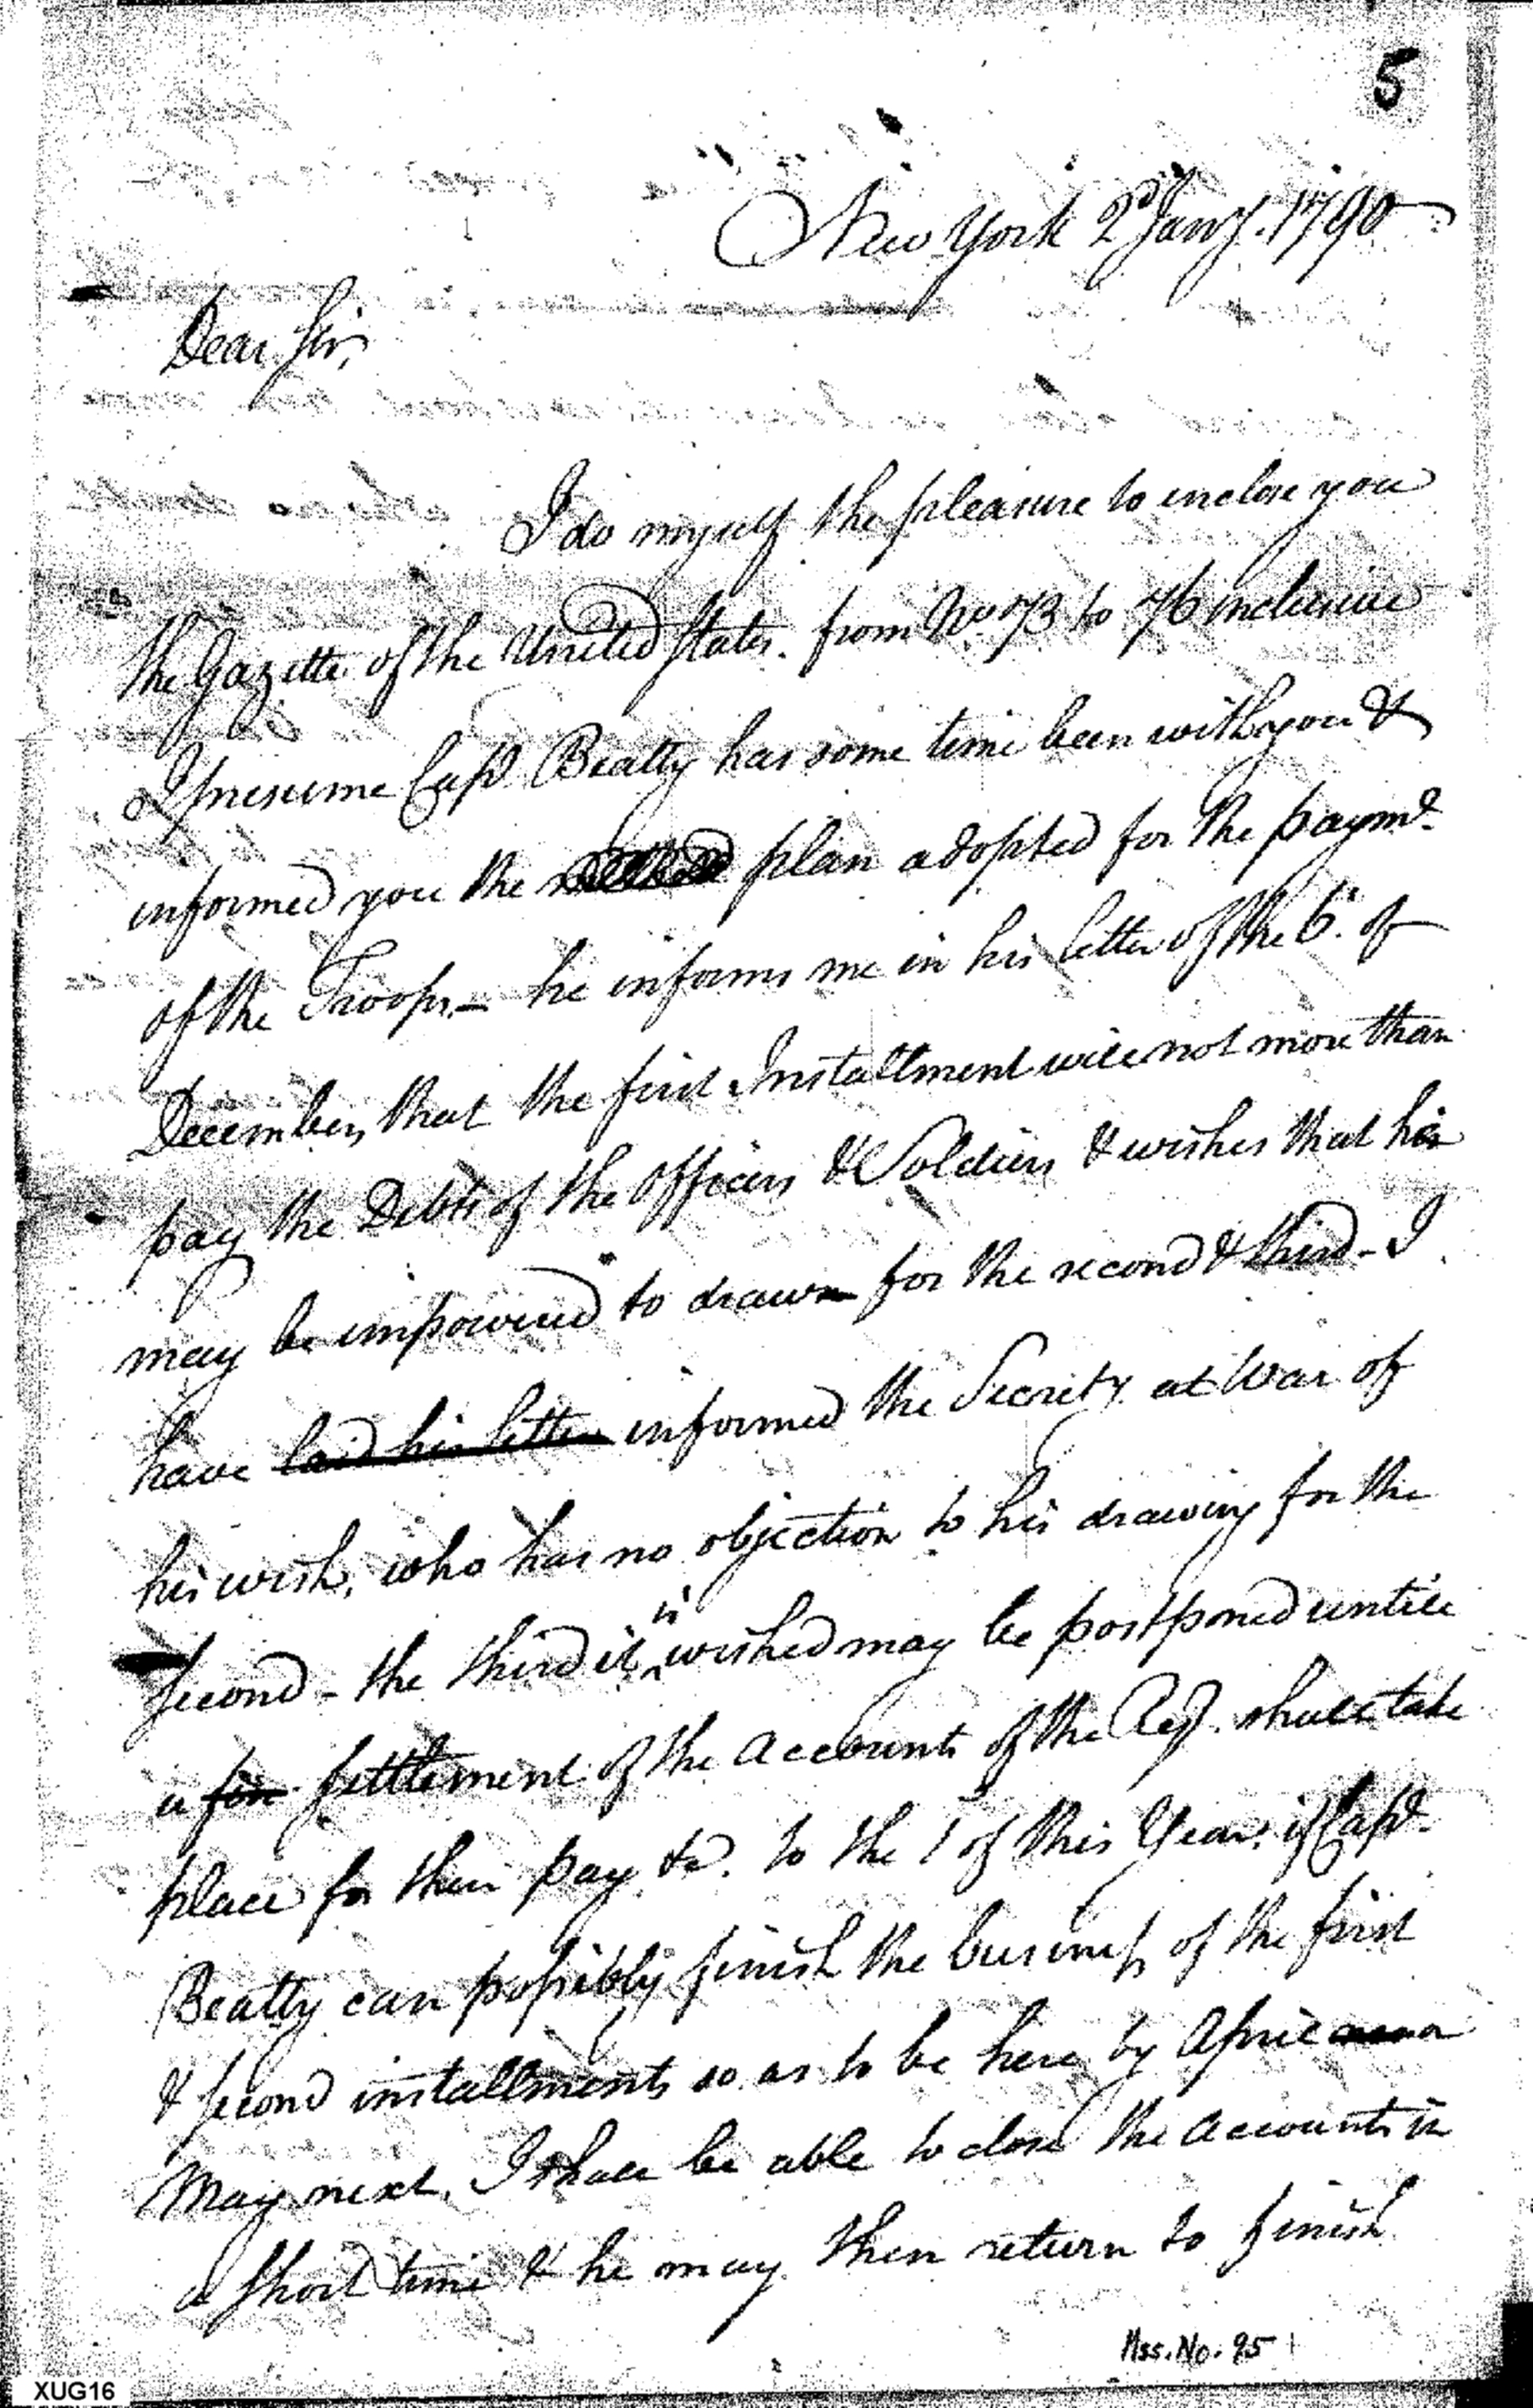 5
New York 2d Jany. 1790
Dear Sir,
I do myself the pleasure to inclose you
the Gazette of the United States. from No 73 to 76 inclusive
I presume Capt. Beatty has some time been with you &
informed you the plan adopted for the paymt.
of the Troops,– he informs me in his letter of the 6. of
December, that the first Installment will not more than
pay the Debts of the Officers & Soldiers & wishes that he
may be impowered to draw for the second & third – I
have laid his letter informed the Secrety. at War of
his wish, who has no objection to his drawing for the
second – the third it is wished may be postponed untill
a fin settlement of the Accounts of the Regt. shall take
place for their pay &c. to the 1 of this Year; if Capt.
Beatty can possibly finish the business of the first
& second installments so as to be here by April or
May next, I shall be able to close the Accounts in
a short time & he may then return to finish
Mss. No. 95
XUG16